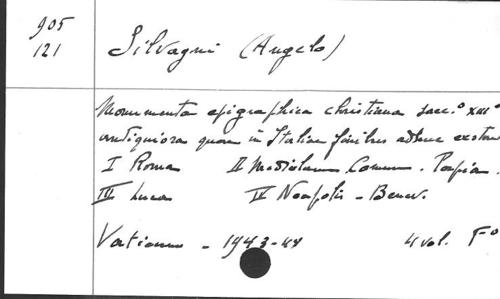 905
121
Silvagni (Angelo)
Monumenta epigraphica christiana saec.º XIIIº
antiquiora quae in Italiae finibus adhuc exstan
I Roma II Mediolanum Comum. Papia.
III Luca IV Neapolis - Benev.
Vaticanum - 1943-44 4 vol. Fº